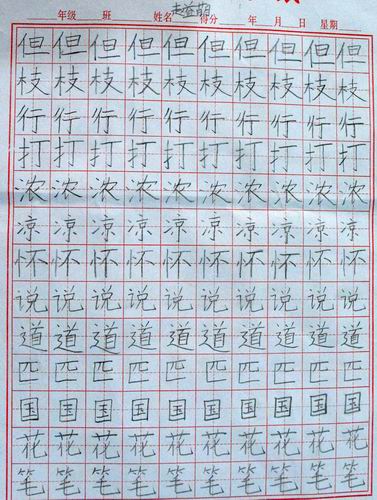 年级 班 姓名 得分 年 月 日 星期
但 但 但 但 但 但 但 但 但 但
枝 枝 枝 枝 枝 枝 枝 枝 枝 枝
行 行 行 行 行 行 行 行 行 行
打 打 打 打 打 打 打 打 打 打
浓 浓 浓 浓 浓 浓 浓 浓 浓 浓
凉 凉 凉 凉 凉 凉 凉 凉 凉 凉
怀 怀 怀 怀 怀 怀 怀 怀 怀 怀
说 说 说 说 说 说 说 说 说 说
道 道 道 道 道 道 道 道 道 道
匹 匹 匹 匹 匹 匹 匹 匹 匹 匹
国 国 国 国 国 国 国 国 国 国
花 花 花 花 花 花 花 花 花 花
笔 笔 笔 笔 笔 笔 笔 笔 笔 笔